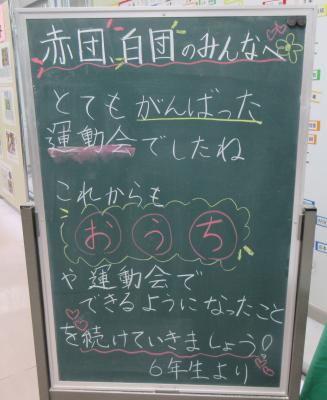 赤団、白団のみんなへ
とても がんばった
運動会でしたね
これからも
おうち
や運動会で
できるようになったこと
を続けていきましょう!
6年生より